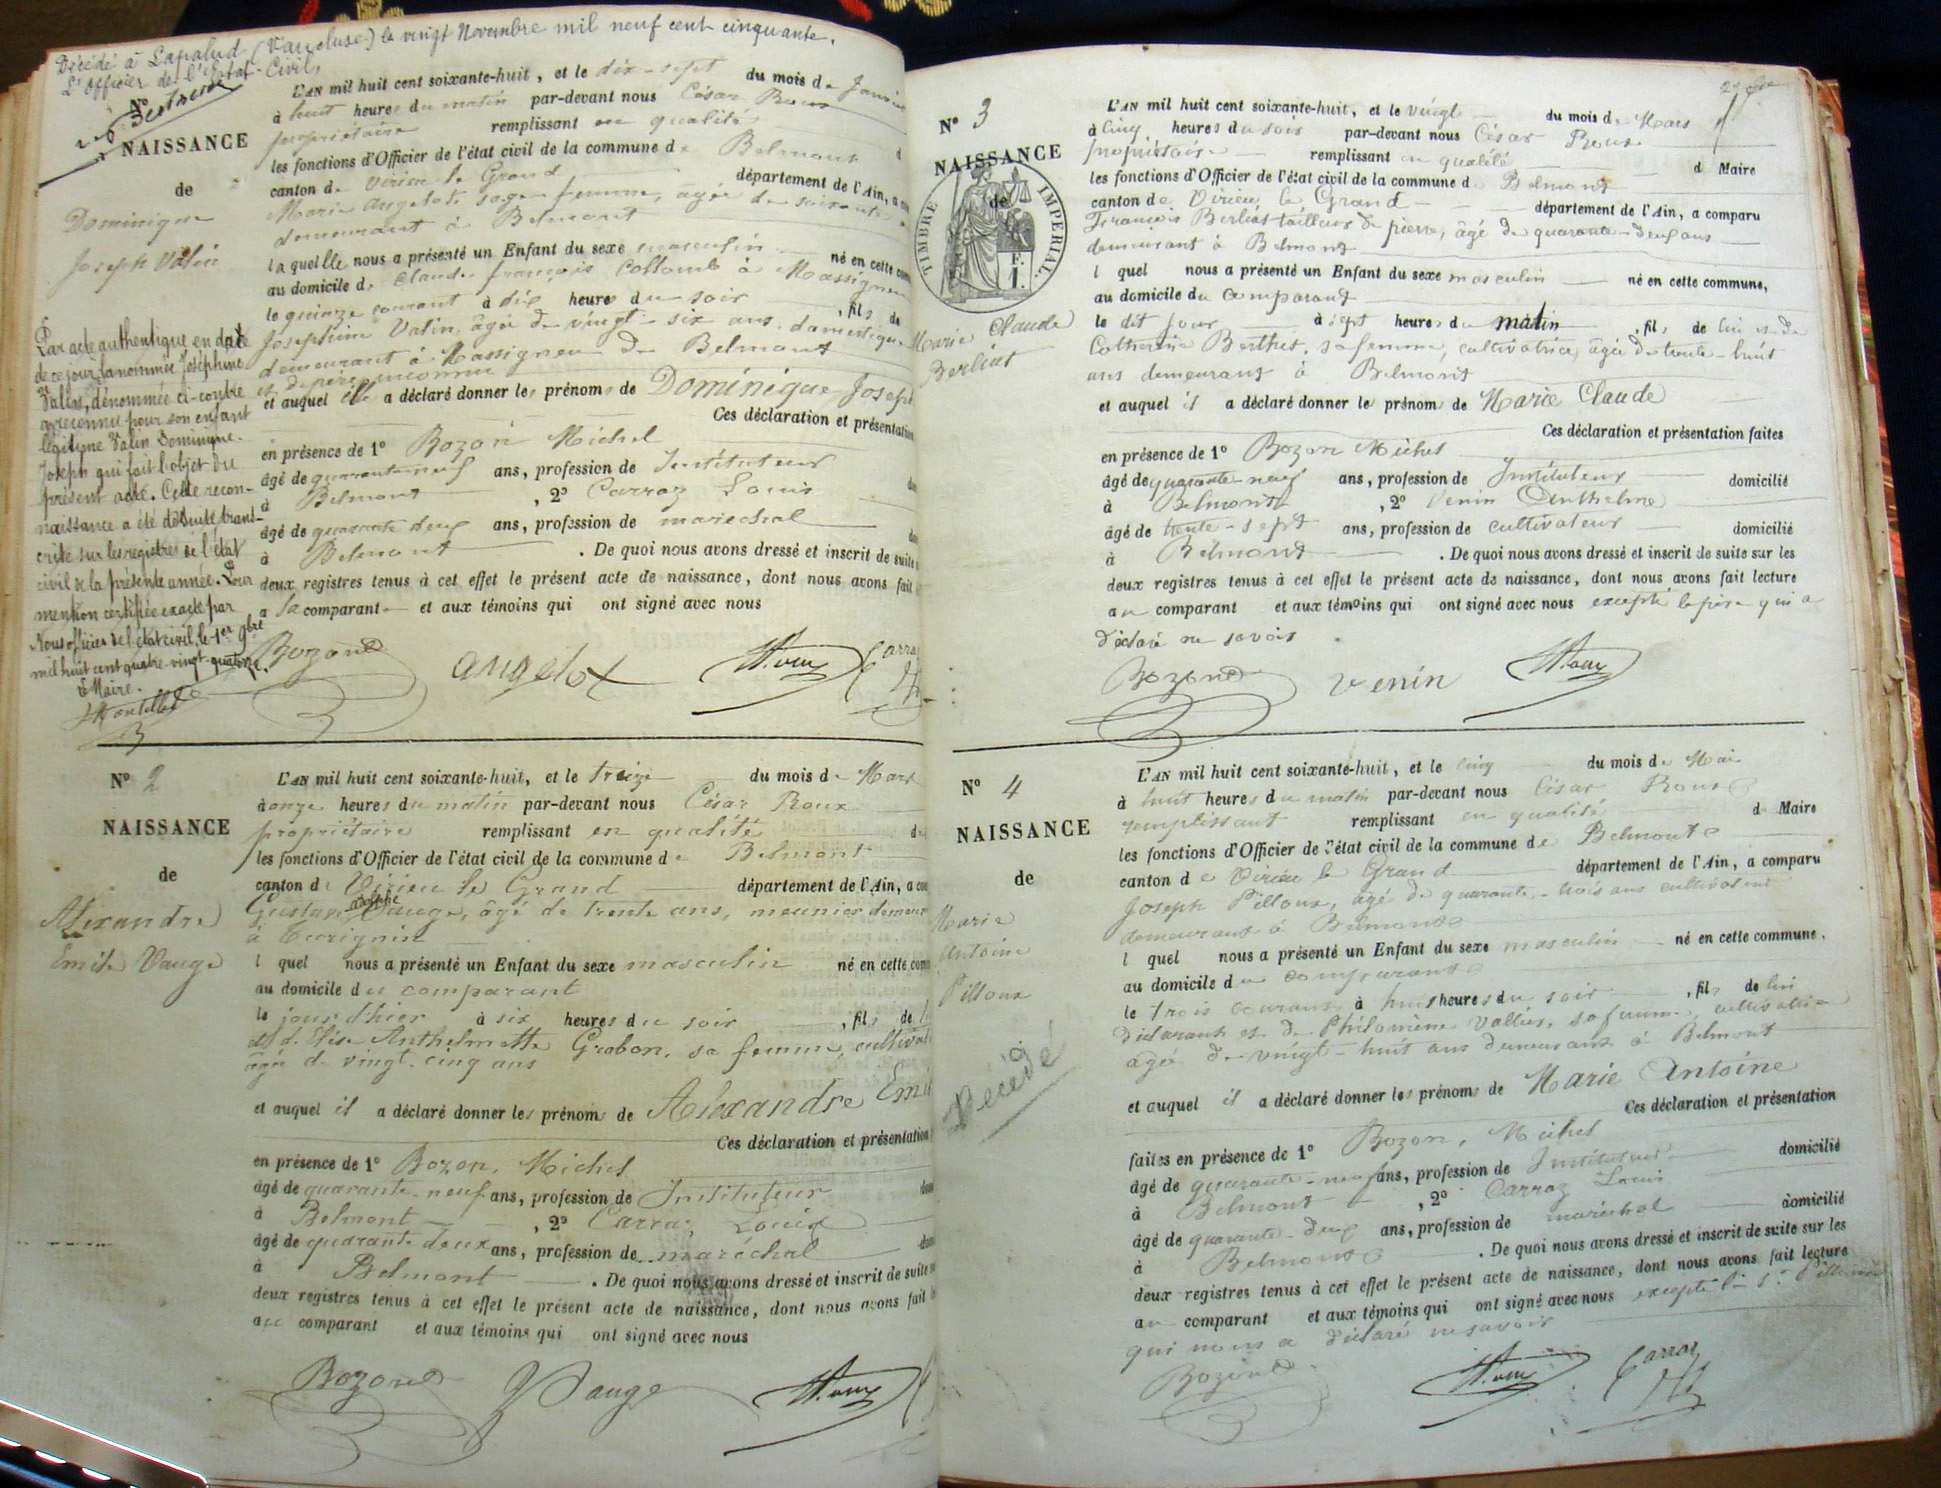 Décédé à Lapalud (Vaucluse) le vingt Novembre mil neuf cent cinquante.
L'officier de l'état-Civil,
N°
NAISSANCE
de
Dominique
Joseph Valin
Par acte authentique en date
de ce jour la nommée Joséphine
Vallin, dénommée ci-contre
a reconnu pour son enfant
légitime Valin Dominique-
Joseph qui fait l'objet du
présent acte. Cette recon-
naissance a été de suite trans-
crite sur les registres de l'état
civil de la présente année. Pour
mention certifiée exacte par
Nous officier de l'état civil, le 1er 9bre
mil huit cent quatre-vingt-quatorze.
Le Maire.
L'AN mil huit cent soixante-huit, et le dix-sept du mois de Janvier
à huit heures du matin par-devant nous César Roux
propriétaire remplissant en qualité
les fonctions d'Officier de l'état civil de la commune de Belmont d
canton de Virieu le Grand département de l'Ain, a com
Marie Angelot sage femme, agée de soixante
demeurant à Belmont
laquelle nous a présenté un Enfant du sexe masculin né en cette com
au domicile de Claude françois Collomb à Massigneu
le quinze courant à dix heures du soir, fils de
Joséphine Valin, âgée de vingt-six ans, domestique
demeurant à Massigneu de Belmont
et de père inconnu
et auquel elle a déclaré donner les prénoms de Dominique Joseph
Ces déclaration et présentation
en présence de 1° Bozon Michel
âgé de quarante neuf ans, profession de Instituteur
à Belmont, 2° Carraz Louis dom
âgé de quarante deux ans, profession de maréchal
à Belmont. De quoi nous avons dressé et inscrit de suite
deux registres tenus à cet effet le présent acte de naissance, dont nous avons fait
a la comparante et aux témoins qui ont signé avec nous
Bozon angelot Roux Carraz
N° 2
NAISSANCE
de
Alexandre
Emile Vauge
L'AN mil huit cent soixante-huit, et le treize du mois de Mars
à onze heures du matin par-devant nous César Roux
propriétaire remplissant en qualité d
les fonctions d'Officier de l'état civil de la commune de Belmont
canton de Virieu le Grand département de l'Ain, a com
Gustave adolphe Vauge, âgé de trente ans, meunier demeur
à
l quel nous a présenté un Enfant du sexe masculin né en cette com
au domicile du comparant
le jour d'hier à six heures du soir, fils de
et d'Elise Anthelmette Grobon, sa femme, cultivat
âgée de vingt-cinq ans
et auquel il a déclaré donner les prénoms de Alexandre Emil
Ces déclaration et présentation
en présence de 1° Bozon, Michel
âgé de quarante-neuf ans, profession de Instituteur dom
à Belmont, 2° Carraz Louis
âgé de quarante deux ans, profession de maréchal dom
à Belmont. De quoi nous avons dressé et inscrit de suite
deux registres tenus à cet effet le présent acte de naissance, dont nous avons fait
au comparant et aux témoins qui ont signé avec nous
Bozon Vauge Roux
N° 3
NAISSANCE
de
TIMBRE IMPERIAL.
Marie Claude
Berliat
L'AN mil huit cent soixante-huit, et le vingt du mois de Mars
à cinq heures du soir par-devant nous César Roux
propriétaire remplissant en qualité d Maire
les fonctions d'Officier de l'état civil de la commune de Belmont
canton de Virieu le Grand département de l'Ain, a comparu
François Berliat tailleur de pierre, âgé de quarante-deux ans
demeurant à Belmont
l quel nous a présenté un Enfant du sexe masculin né en cette commune,
au domicile du comparant
le dit jour à sept heures du matin, fils de lui et de
Catherine Berthet, sa femme, cultivatrice, âgée de trente-huit
ans demeurant à Belmont
et auquel il a déclaré donner les prénoms de Marie Claude
Ces déclaration et présentation faites
en présence de 1° Bozon Michel
âgé de quarante-neuf ans, profession de Instituteur domicilié
à Belmont, 2° Venin Anthelme
âgé de trente-sept ans, profession de cultivateur domicilié
à Belmont. De quoi nous avons dressé et inscrit de suite sur les
deux registres tenus à cet effet le présent acte de naissance, dont nous avons fait lecture
au comparant et aux témoins qui ont signé avec nous excepté le père qui a
déclaré ne savoir.
Bozon venin Roux
N° 4
NAISSANCE
de
Marie
Antoine
Pilloux
Décédé
L'AN mil huit cent soixante-huit, et le cinq du mois de Mai
à huit heures du matin par-devant nous César Roux
remplissant remplissant en qualité d Maire
les fonctions d'Officier de l'état civil de la commune de Belmont
canton de Virieu le Grand département de l'Ain, a comparu
Joseph Pilloux, âgé de quarante-trois ans cultivateur
demeurant à Belmont
l quel nous a présenté un Enfant du sexe masculin né en cette commune.
au domicile du comparant
le trois courant, à huit heures du soir, fils de lui
déclarant et de Philomène Vallin, sa femme, cultivatrice
âgée de vingt-huit ans demeurant à Belmont
et auquel il a déclaré donner les prénoms de Marie Antoine
Ces déclaration et présentation
faites en présence de 1° Bozon, Michel
âgé de quarante-neuf ans, profession de Instituteur domicilié
à Belmont, 2° Carraz Louis
âgé de quarante-deux ans, profession de maréchal domicilié
à Belmont. De quoi nous avons dressé et inscrit de suite sur les
deux registres tenus à cet effet le présent acte de naissance, dont nous avons fait lecture
au comparant et aux témoins qui ont signé avec nous excepté le Sr Pilloux
qui nous a déclaré ne savoir
Bozon Roux Carraz